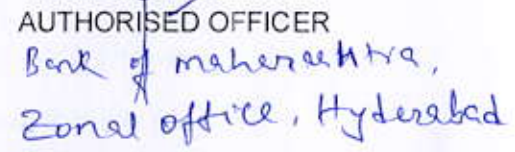 AUTHORISED OFFICER
Bank of maharashtra,
Zonal office, Hyderabad